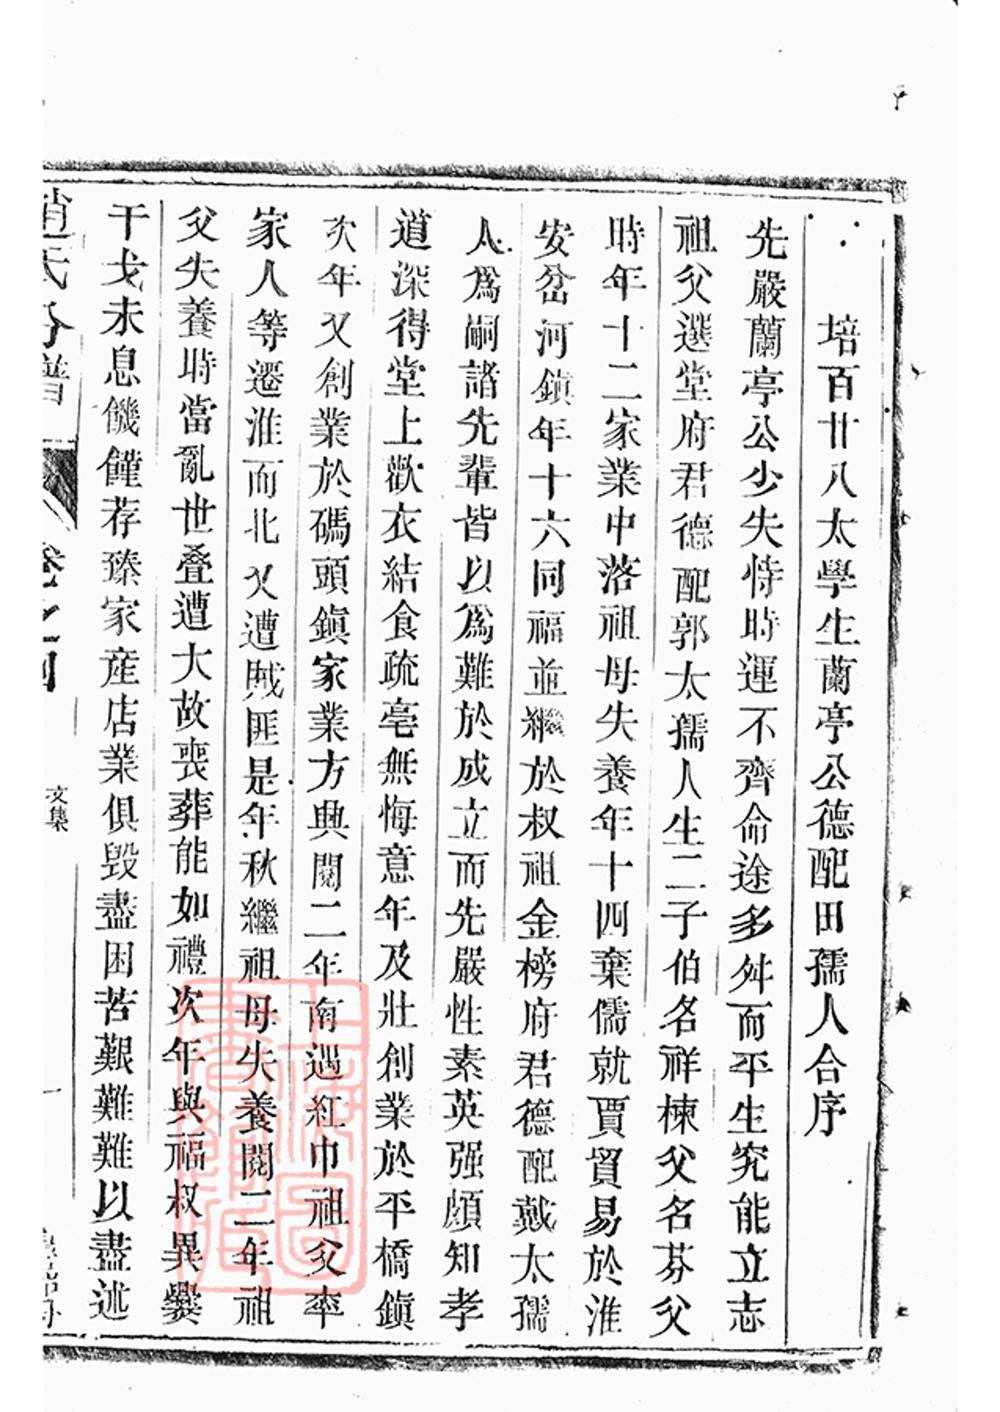 培百廿八太學生蘭亭公德配田孺人合序
先嚴蘭亭公少失恃時運不齊命途多舛而平生究能立志
祖父選堂府君德配郭太孺人生二子伯名祥棟父名芬父
時年十二家業中落祖母失養年十四棄儒就賈貿易於淮
安岔河鎮年十六同福並繼於叔祖金榜府君德配戴太孺
人爲嗣諸先輩皆以爲難於成立而先嚴性素英强頗知孝
道深得堂上歡衣結食疏亳無悔意年及壯創業於平橋鎮
次年又創業於碼頭鎮家業方興閱二年南遇紅巾祖父率
家人等遷淮而北又遭賊匪是年秋繼祖母失養閱二年祖
父失養時當亂世叠遭大故喪葬能如禮次年與福叔異爨
干戈未息饑饉荐臻家産店業俱毁盡困苦艱難難以盡述
趙氏分譜
卷之四
文集
一